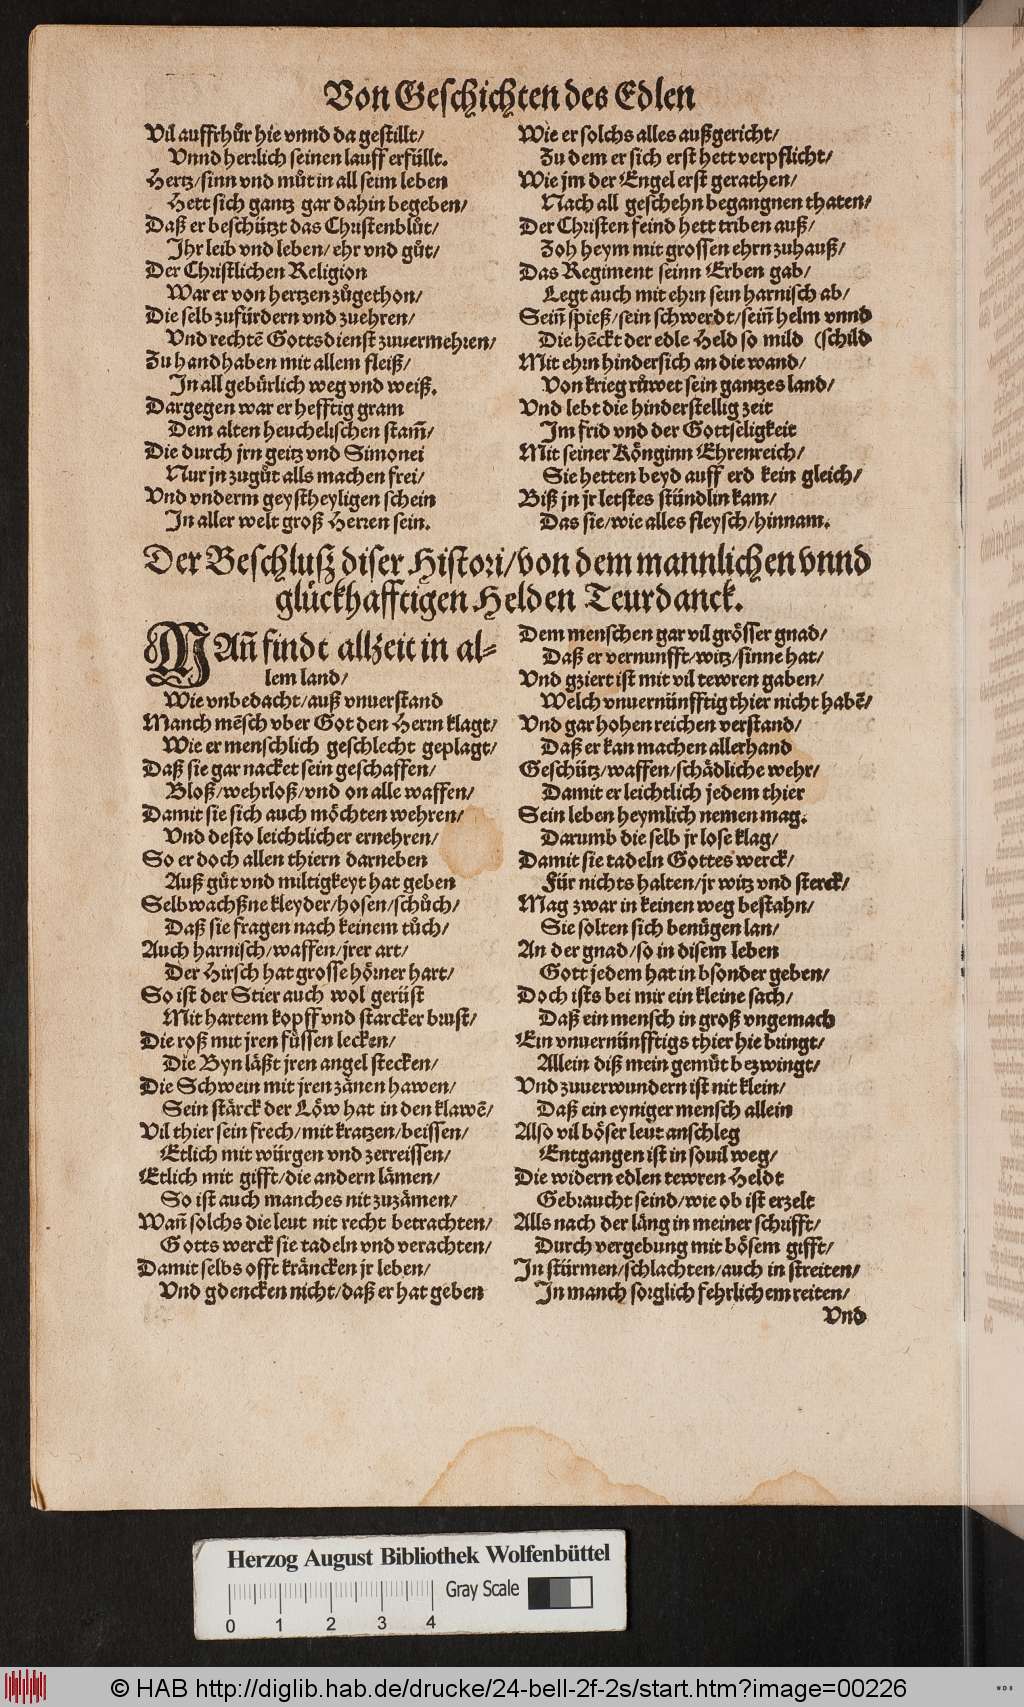 Von Geschichten des Edlen
Vil auffrhůr hie vnnd da gestillt/
Vnnd herrlich seinen lauff erfüllt.
Hertz/sinn vnd můt in all seim leben
Hett sich gantz gar dahin begeben/
Daß er beschützt das Christenblůt/
Ihr leib vnd leben/ehr vnd gůt/
Der Christlichen Religion
War er von hertzen zůgethon/
Die selb zufürdern vnd zuehren/
Vnd rechtē Gottsdienst zuuermehren/
Zu handhaben mit allem fleiß/
In all gebürlich weg vnd weiß.
Dargegen war er hefftig gram
Dem alten heuchelischen stam̃/
Die durch jrn geitz vnd Simonei
Nur jn zugůt alls machen frei/
Vnd vnderm geystheyligen schein
In aller welt groß Herren sein.
Wie er solchs alles außgericht/
Zu dem er sich erst hett verpflicht/
Wie jm der Engel erst gerathen/
Nach all geschehn begangnen thaten/
Der Christen feind hett triben auß/
Zoh heym mit grossen ehrn zuhauß/
Das Regiment seinn Erben gab/
Legt auch mit ehrn sein harnisch ab/
Sein̄ spieß/sein schwerdt/sein̄ helm vnnd
Die hēckt der edle Held so mild (schild
Mit ehrn hindersich an die wand/
Von krieg růwet sein gantzes land/
Vnd lebt die hinderstellig zeit
Im frid vnd der Gottseligkeit
Mit seiner Könginn Ehrenreich/
Sie hetten beyd auff erd kein gleich/
Biß jn jr letstes stündlin kam/
Das sie/wie alles fleysch/hinnam.
Der Beschlusz diser Histori/von dem mannlichen vnnd
glückhafftigen Helden Teurdanck.
MAn̄ findt allzeit in al-
lem land/
Wie vnbedacht/auß vnuerstand
Manch mēsch vber Got den Herrn klagt/
Wie er menschlich geschlecht geplagt/
Daß sie gar nacket sein geschaffen/
Bloß/wehrloß/vnd on alle waffen/
Damit sie sich auch möchten wehren/
Vnd desto leichtlicher ernehren/
So er doch allen thiern darneben
Auß güt vnd miltigkeyt hat geben
Selbwachßne kleyder/hosen/schůch/
Daß sie fragen nach keinem tůch/
Auch harnisch/waffen/jrer art/
Der Hirsch hat grosse hörner hart/
So ist der Stier auch wol gerüst
Mit hartem kopff vnd starcker brust/
Die roß mit jren füssen lecken/
Die Byn läßt jren angel stecken/
Die Schwein mit jren zänen hawen/
Sein stärck der Löw hat in den klawē/
Vil thier sein frech/mit kratzen/beissen/
Etlich mit würgen vnd zerreissen/
Etlich mit gifft/die andern lämen/
So ist auch manches nit zuzämen/
Wan̄ solchs die leut nit recht betrachten/
Gotts werck sie tadeln vnd verachten/
Damit selbs offt kräncken jr leben/
Vnd gdencken nicht/daß er hat geben
Dem menschen gar vil grösser gnad/
Daß er vernunfft/witz/sinne hat/
Vnd gziert ist mit vil tewren gaben/
Welch vnuernünfftig thier nicht habē/
Vnd gar hohen reichen verstand/
Daß er kan machen allerhand
Geschütz/waffen/schädliche wehr/
Damit er leichtlich jedem thier
Sein leben heymlich nemen mag.
Darumb die selb jr lose klag/
Damit sie tadeln Gottes werck/
Für nichts halten/jr witz vnd sterck/
Mag zwar in keinen weg bestahn/
Sie solten sich benügen lan/
An der gnad/so in disem leben
Gott jedem hat in bsonder geben/
Doch ists bei mir ein kleine sach/
Daß ein mensch in groß vngemach
Ein vnuernünfftigs thier hie bringt/
Allein diß mein gemüt bezwingt/
Vnd zuuerwundern ist nit klein/
Daß ein eyniger mensch allein
Also vil böser leut anschleg
Entgangen ist in souil weg/
Die widern edlen tewren Heldt
Gebraucht seind/wie ob ist erzelt
Alls nach der läng in meiner schrifft/
Durch vergebung mit bösem gifft/
In stürmen/schlachten/auch in streiten/
In manch sorglich fehrlichem reiten/
Vnd
Herzog August Bibliothek Wolfenbüttel
Gray Scale
0 1 2 3 4
© HAB http://diglib.hab.de/drucke/24-bell-2f-2s/start.htm?image=00226